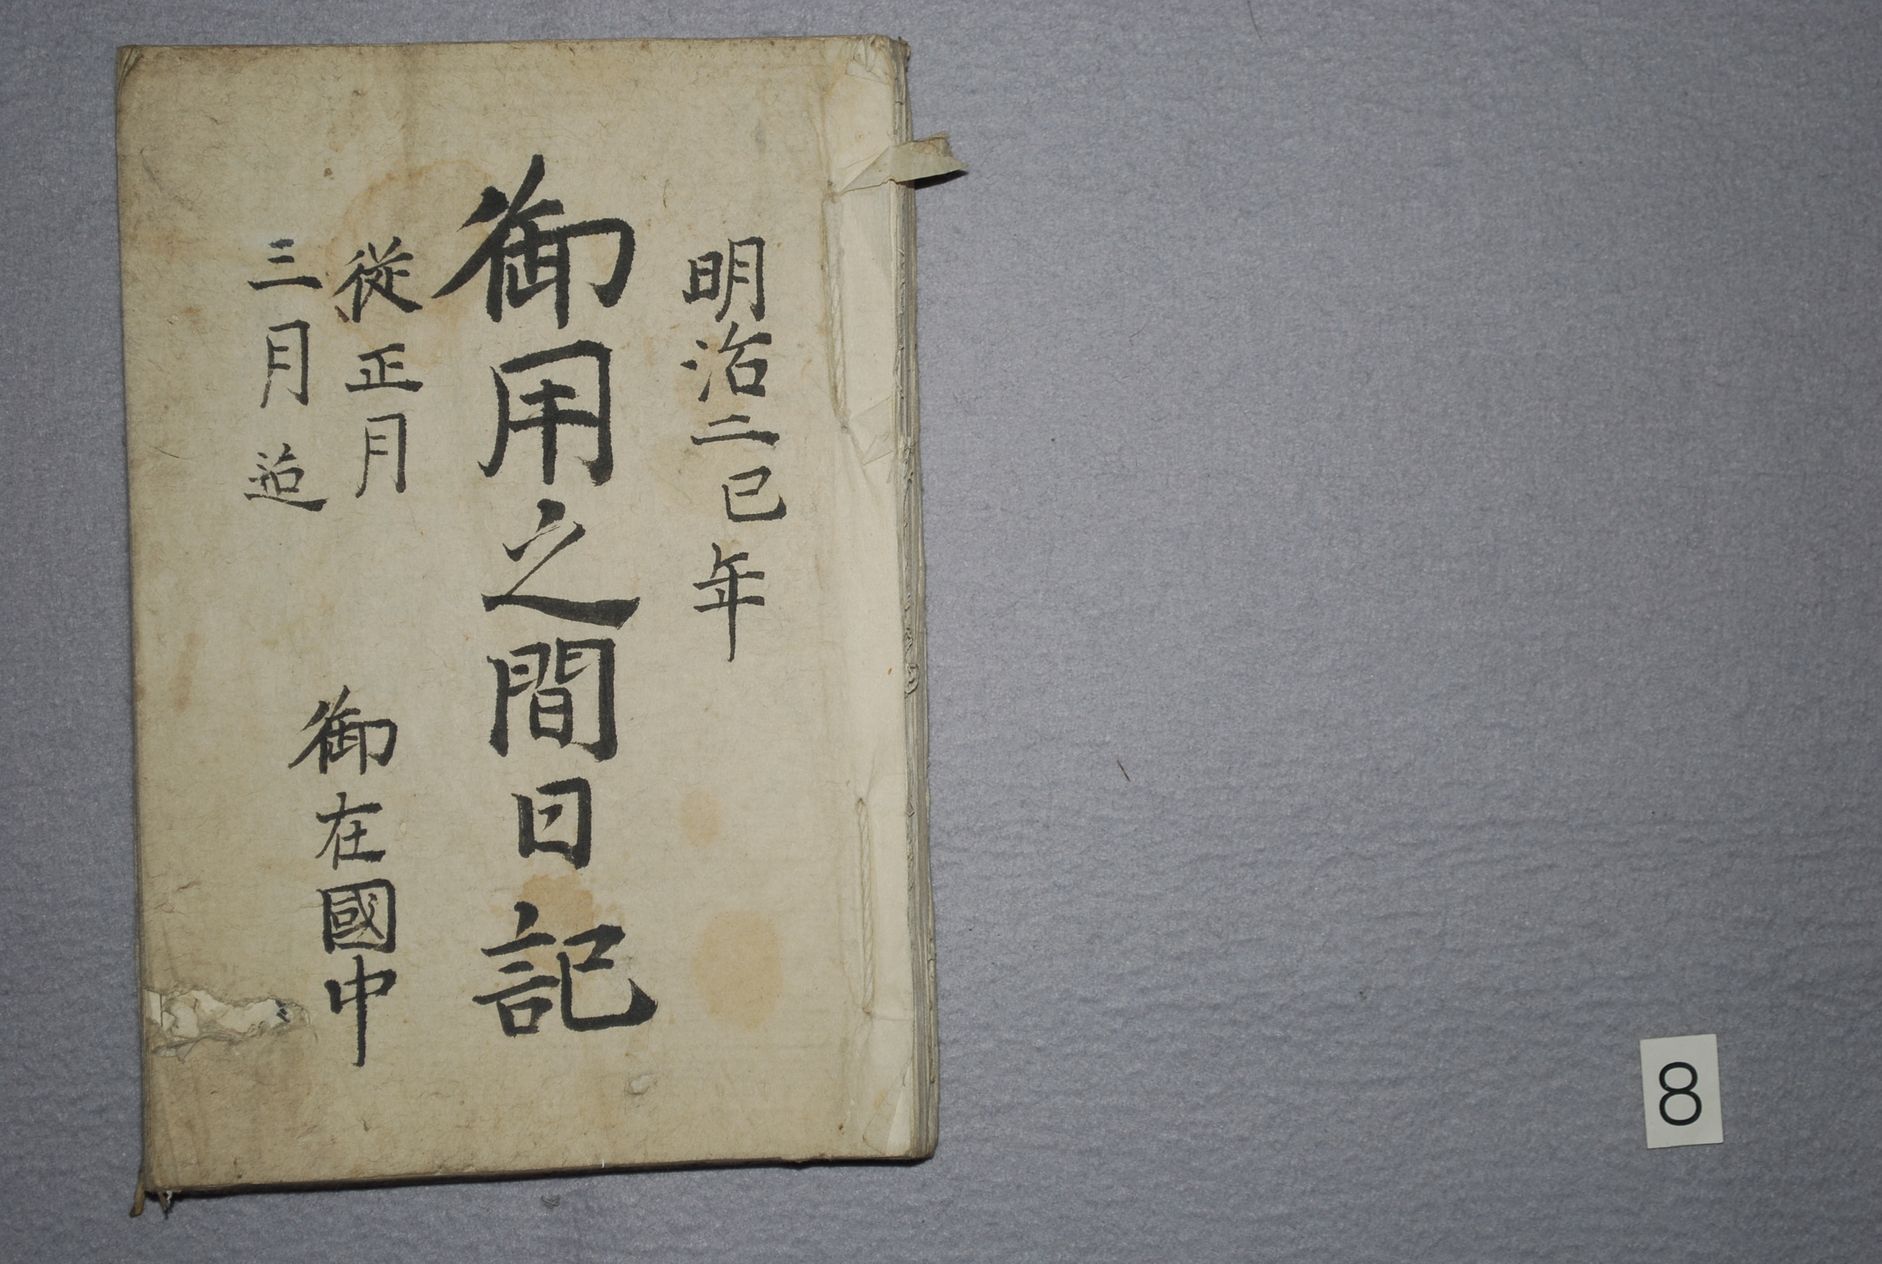 明治二巳年
御用之間日記
從正月
三月迨
御在國中
8